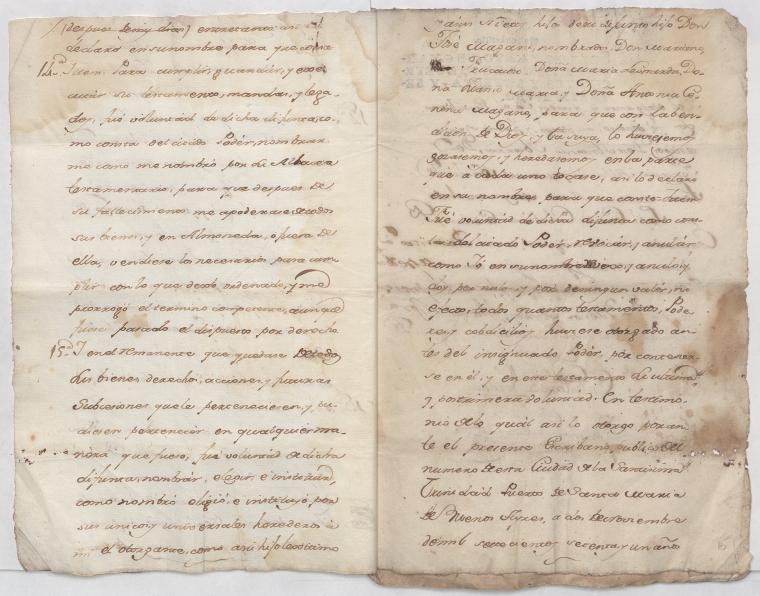 (despues de mis dias) entretanto
declaro en su nombre para que conste
14ª Iten. Para cumplir, guardar, y exe
cutar su testamento, mandas, y lega
dos, fué voluntad de dicha difunta, co
mo consta del citado Poder, nombrar
me como me nombró por su Albacea
testamentario, para que despues de
su fallecimiento me apoderase de todos
sus bienes, y en Almoneda, o fuera de
ella, vendiese lo necesario para cum
plir con lo que dexò ordenado, y me
prorrogó el termino competente, aunque
fuese pasado el dispuesto por derecho
15ª Y en el remanente que quedase de todos
sus bienes derechos, acciones, y futuras
Subcesiones que le perteneciesen, y pu
diesen pertenecer en qualquier ma
nera que fuese, fue voluntad de dicha
difunta, nombrar, elegir, é instituir,
como nombró eligió, é instituyó por
sus unicos, y universales herederos à
mi el otorgante, como su hijo lexitimo
y à mis nietos hijos de su difunto hijo Don
José Magan, nombrados, Don Mariano,
Doña Maria Leonarda, Do
ña Maria, y Doña Antonia
Magano, para que con la ben
dicion de Dios, y la suya, lo huviesemos
gozasemos, y heredasemos en la parte
que à cada uno tocase, asi lo declaro
en su nombre para que conste. Iten
Fué voluntad de dicha difunta como con
sta del citado Poder, revocar, y anular
como Yo en su nombre revoco, y anulo, y
doy por nulo, y por de ningun valor, ni
efecto, todos quantos testamentos, Pode
res, y cobdicilios huviese otorgado an
tes del insignuado Poder, por contener
se en èl, y en este testamento su ultima
y postrimera voluntad. En testimo
nio de lo qual asi lo otorgo por an
te el presente Escribano publico del
numero de esta Ciudad de la Santisima
Trinidad Puerto de Santa Maria
de Buenos Ayres, a dos de noviembre
de mil setecientos setenta, y un años